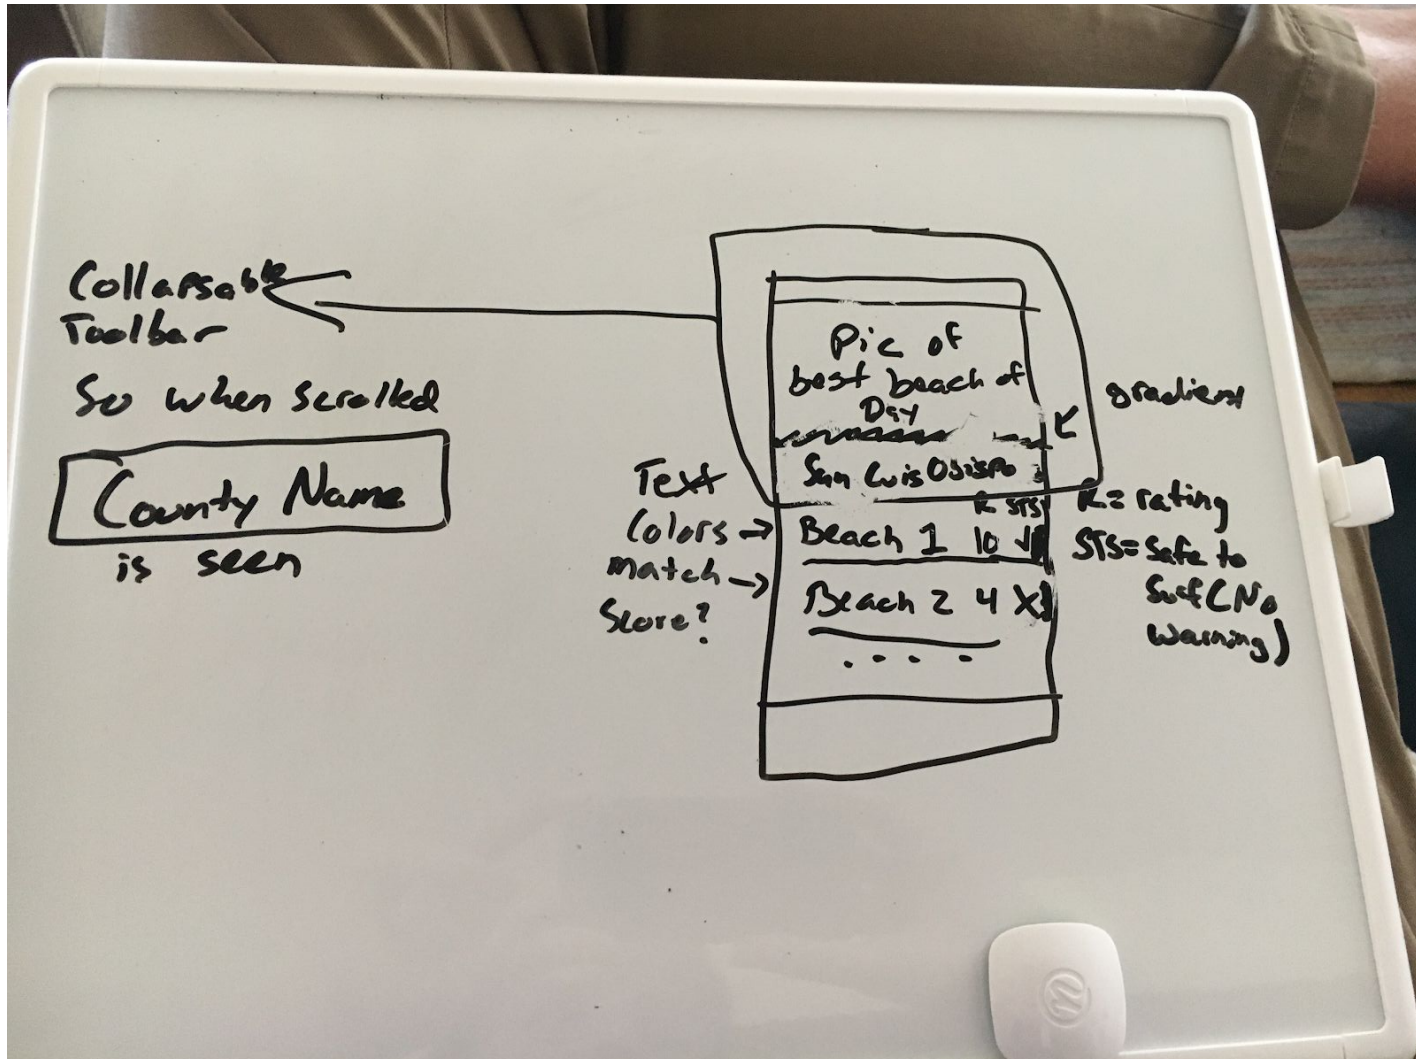 Collapsable
Toolbar
So when scrolled
County Name
is seen
Pic of
best beach of
Day
gradient
San Luis Obispo
R STS
Beach 1 10 ✓
Beach 2 4 X
. . . .
Text
Colors
match
Score?
R = rating
STS = Safe to
Surf (No
warning)